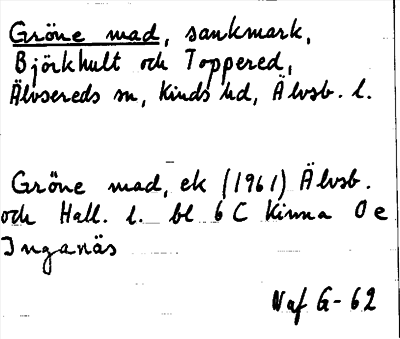 Gröne mad, sankmark,
Björkhult och Toppered,
Älvsereds sn, Kinds hd, Älvsb. l.
Gröne mad, ek (1961) Älvsb.
och Hall. l. bl 6 C Kinna O e
Inganäs
Naf G-62